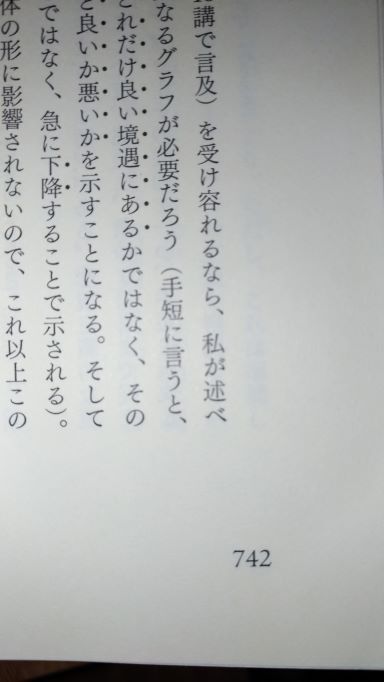 講で言及）を受け容れるなら、私が述べ
なるグラフが必要だろう（手短に言うと、
れだけ良い境遇にあるかではなく、その
と良いか悪いかを示すことになる。そして
ではなく、急に下降することで示される）。
体の形に影響されないので、これ以上この
742